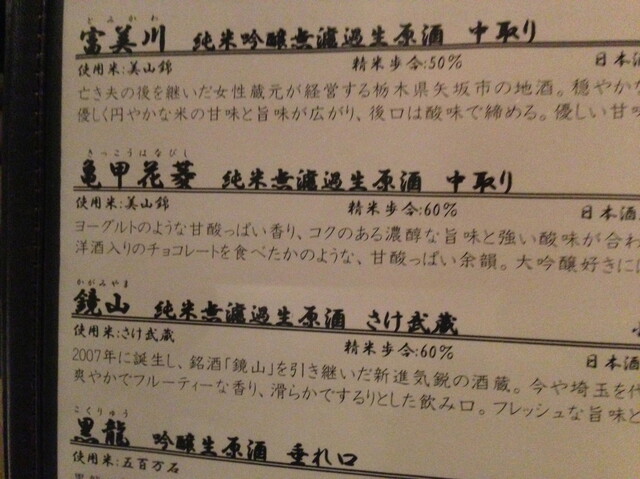 とみかわ
富美川 純米吟醸無濾過生原酒 中取り
使用米:美山錦 精米歩合:50% 日本酒
亡き夫の後を継いだ女性蔵元が経営する栃木県矢坂市の地酒。穏やかな
優しく円やかな米の甘味と旨味が広がり、後口は酸味で締める。優しい甘
きっこうはなびし
亀甲花菱 純米無濾過生原酒 中取り
使用米:美山錦 精米歩合:60% 日本酒
ヨーグルトのような甘酸っぱい香り、コクのある濃醇な旨味と強い酸味が合わ
洋酒入りのチョコレートを食べたかのような、甘酸っぱい余韻。大吟醸好きに
かがみやま
鏡山 純米無濾過生原酒 さけ武蔵
使用米:さけ武蔵 精米歩合:60% 日本酒
2007年に誕生し、銘酒「鏡山」を引き継いだ新進気鋭の酒蔵。今や埼玉を代
爽やかでフルーティーな香り、滑らかでするりとした飲み口。フレッシュな旨味と
こくりゅう
黒龍 吟醸生原酒 垂れ口
使用米:五百万石